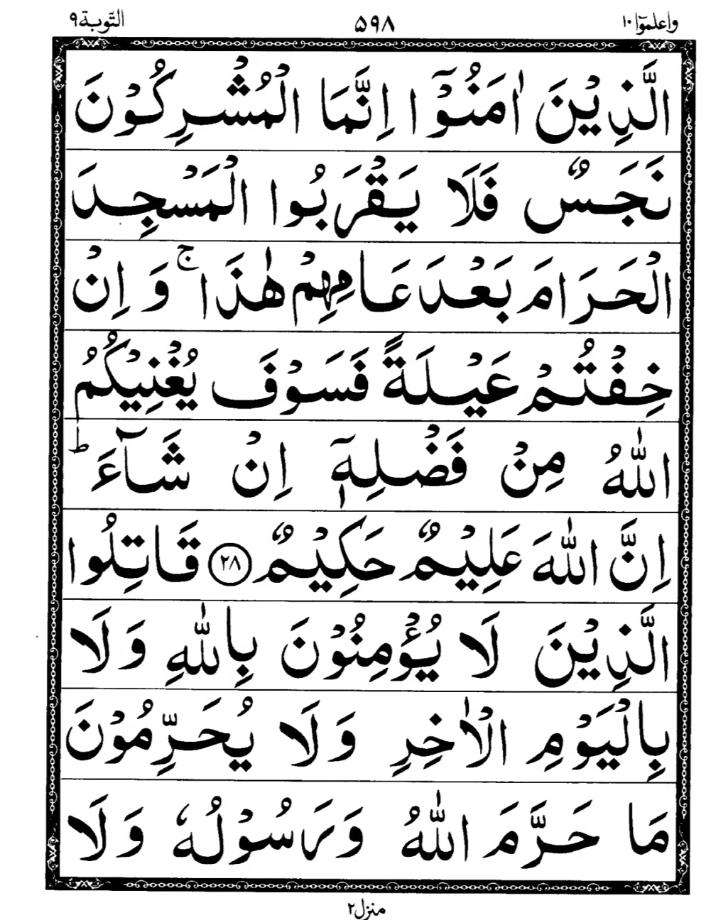 واعلموٓا ١٠ ۵۹۸ التّوبة ۹
الَّذِيْنَ اٰمَنُوْٓا اِنَّمَا الْمُشْرِكُوْنَ
نَجَسٌ فَلَا يَقْرَبُوا الْمَسْجِدَ
الْحَرَامَ بَعْدَ عَامِهِمْ هٰذَا ۚ وَ اِنْ
خِفْتُمْ عَيْلَةً فَسَوْفَ يُغْنِيْكُمُ
اللّٰهُ مِنْ فَضْلِهٖٓ اِنْ شَآءَ ؕ
اِنَّ اللّٰهَ عَلِيْمٌ حَكِيْمٌ ﴿۲۸﴾ قَاتِلُوا
الَّذِيْنَ لَا يُؤْمِنُوْنَ بِاللّٰهِ وَلَا
بِالْيَوْمِ الْاٰخِرِ وَلَا يُحَرِّمُوْنَ
مَا حَرَّمَ اللّٰهُ وَرَسُوْلُهٗ وَلَا
منزل ٢